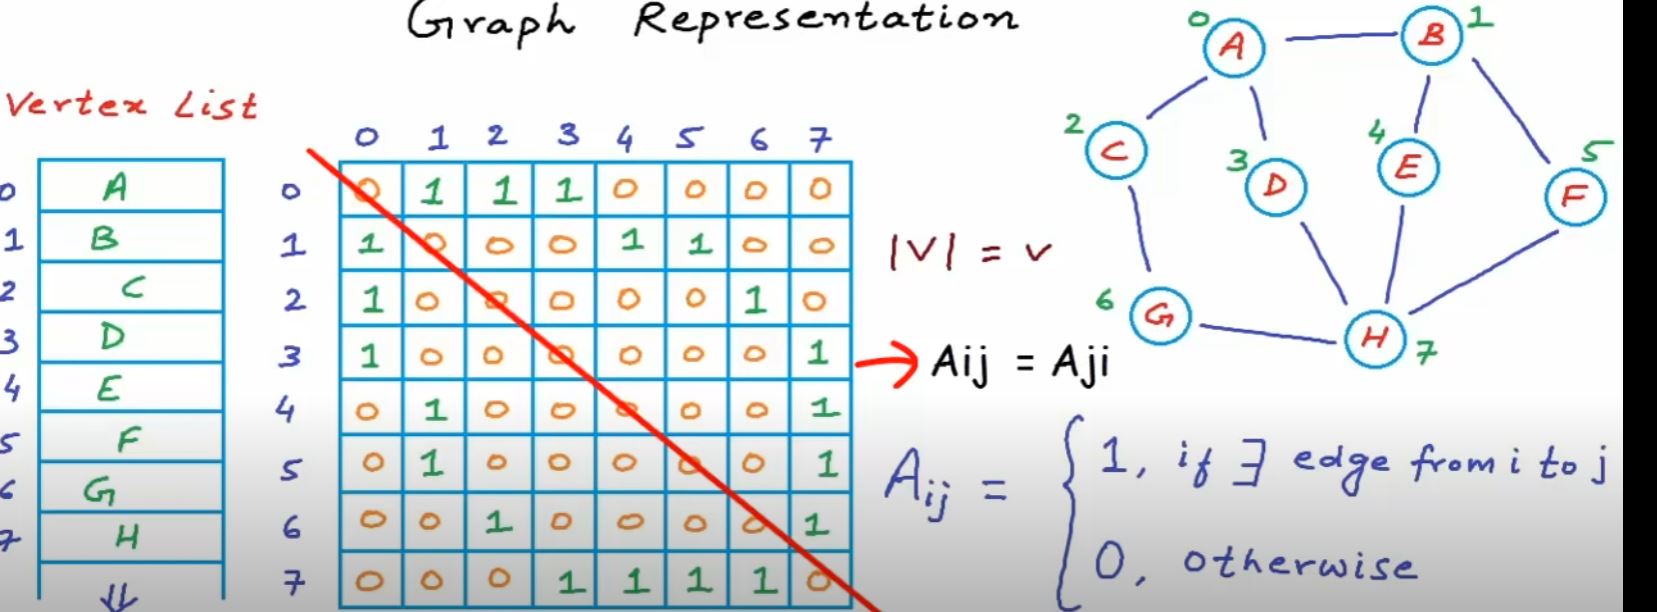 Graph Representation
Vertex List
0 A
1 B
2 C
3 D
4 E
5 F
6 G
7 H
0 1 2 3 4 5 6 7
0 0 1 1 1 0 0 0 0
1 1 0 0 0 1 1 0 0
2 1 0 0 0 0 0 1 0
3 1 0 0 0 0 0 0 1
4 0 1 0 0 0 0 0 1
5 0 1 0 0 0 0 0 1
6 0 0 1 0 0 0 0 1
7 0 0 0 1 1 1 1 0
|V| = v
→ Aij = Aji
Aij = { 1, if ∃ edge from i to j
0, otherwise
0 A
B 1
2 C
3 D
4 E
5 F
6 G
H 7